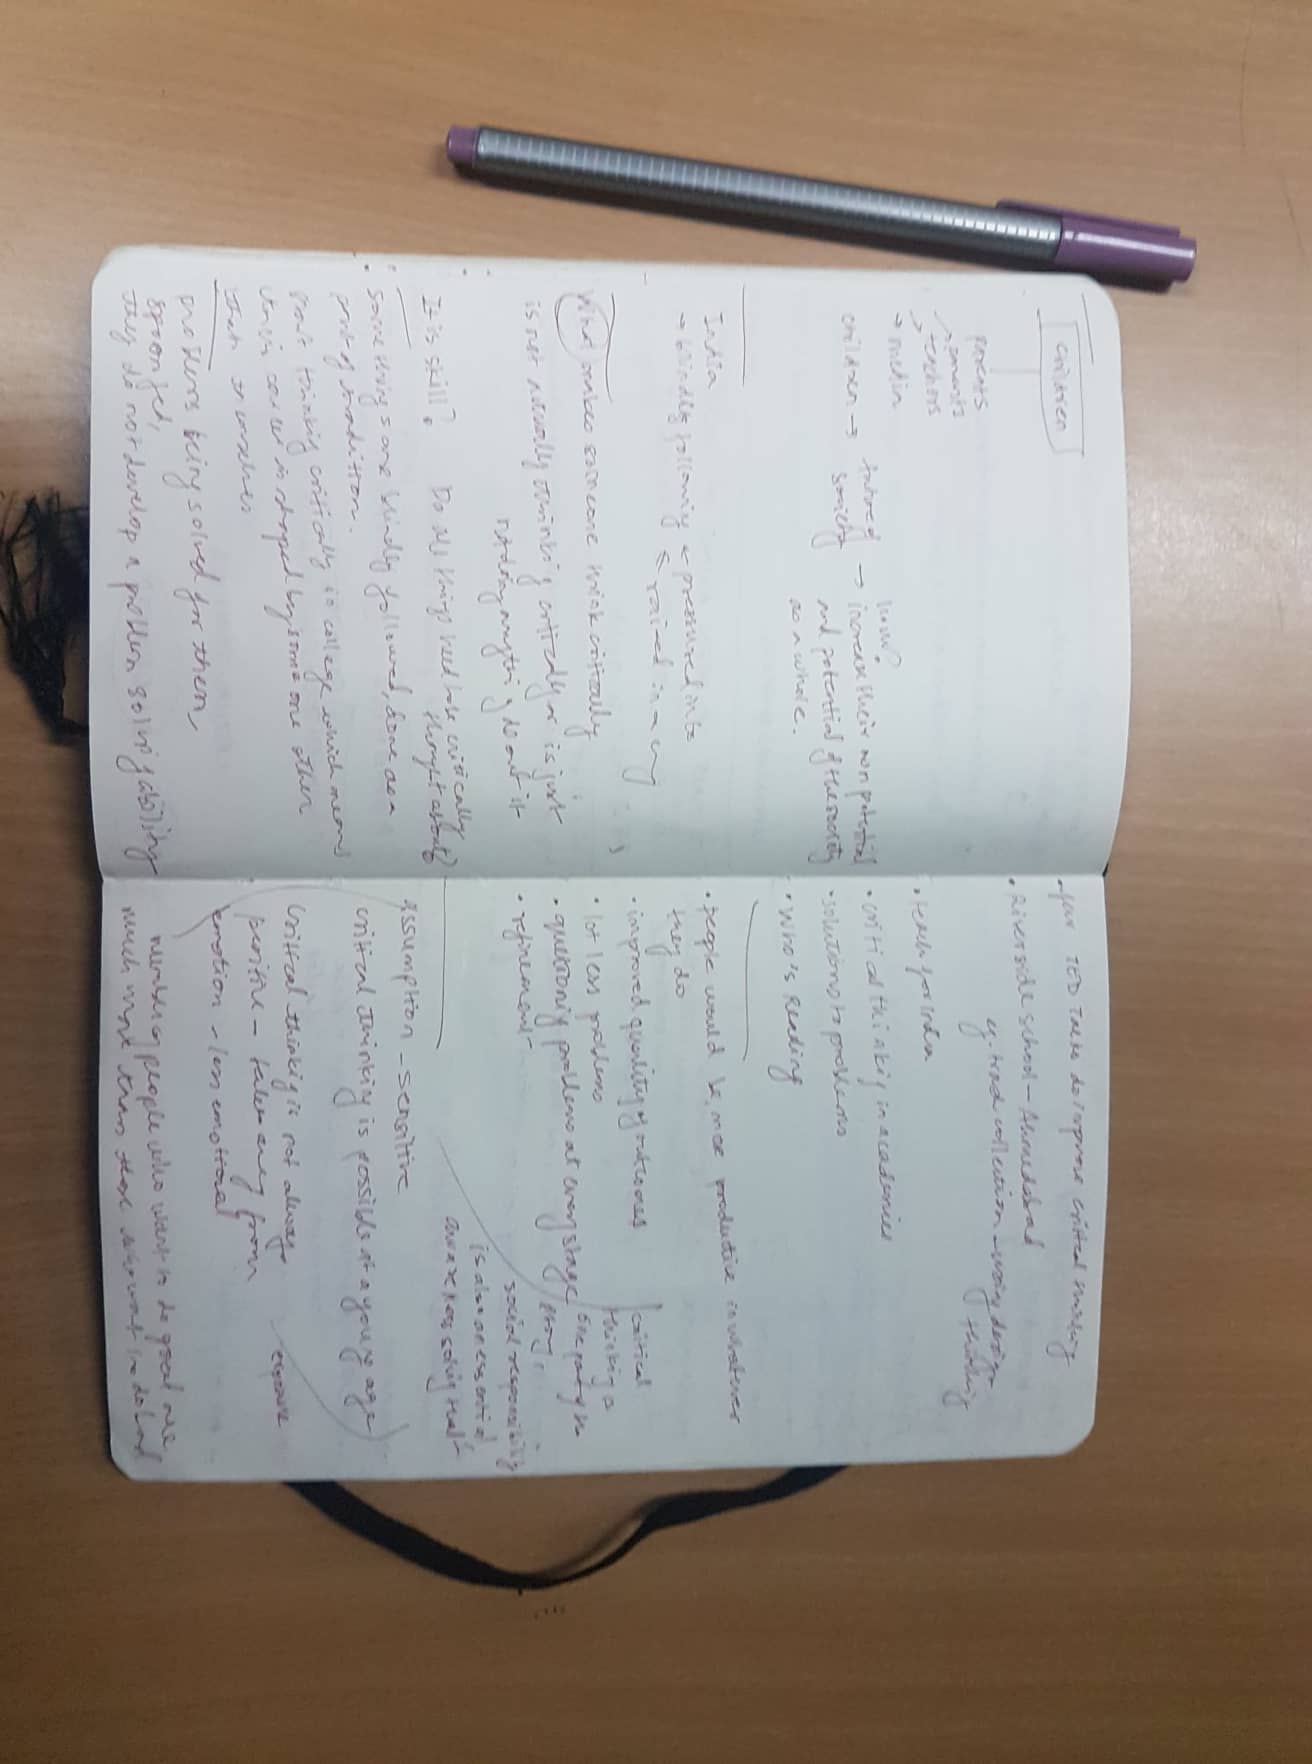 children
parents
parents
teachers
→ media
how?
children → → increase their own potential
society and potential of the society
as a whole.
India
→ blindly following ← pressured into
← raised in a
What makes someone think critically
is not actually thinking critically or is just
not doing anything about it
It is skill? Do all things need to be critically
thought about?
some things are blindly followed, done as a
part of tradition.
thinking critically in college which means
is by someone other
than ourselves
problems being solved for them,
spoonfed,
they do not develop a problem solving ability
• few TED Talks do improve critical thinking
• Riverside school – Ahmedabad
eg. collection – using design
thinking
• teach for India
• critical thinking in academics
• solutions to problems
• who's reading
• people would be more productive in whatever
they do
• improved quality of outcomes
• lot less problems
• questioning problems at every stage
• refinement
critical
thinking is
one part of the
story,
social responsibility
is also an essential
awareness, solving that
Assumption – sensitive
critical thinking is possible at a young age
critical thinking is not always
positive – takes away from
emotion – less emotional
exposure
number of people who want to do good are
much more than those who want to do bad